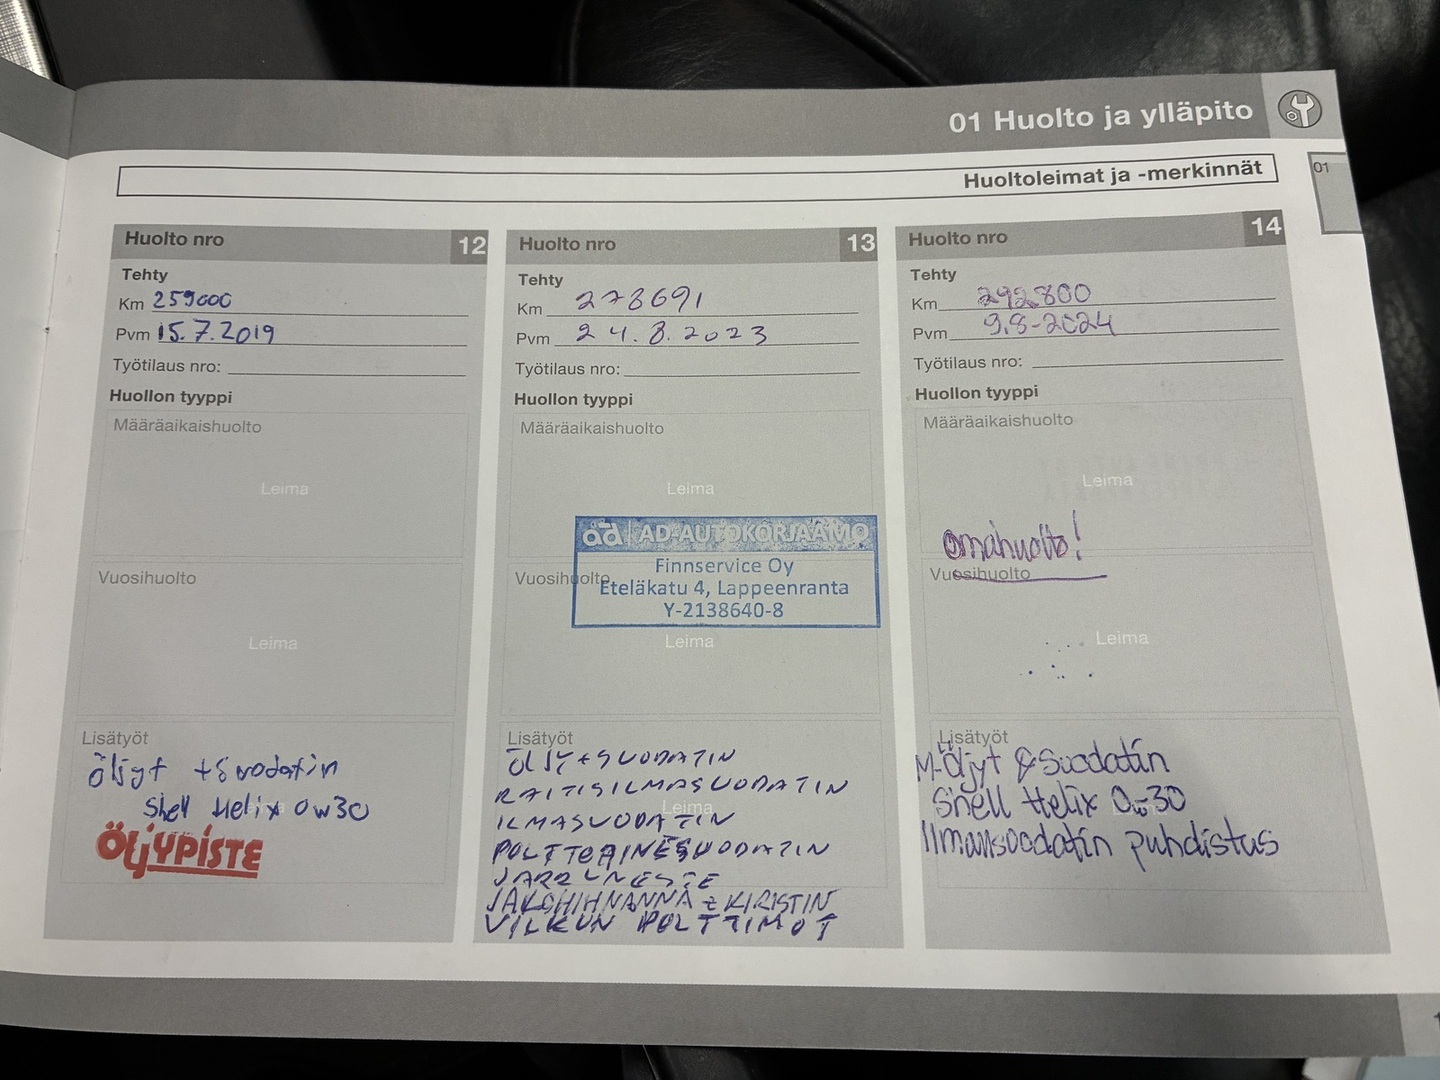 01 Huolto ja ylläpito
Huoltoleimat ja -merkinnät
01
Huolto nro 12
Tehty
Km 259000
Pvm 15.7.2019
Työtilaus nro:
Huollon tyyppi
Määräaikaishuolto
Leima
Vuosihuolto
Leima
Lisätyöt
Öljyt + Suodatin
Shell Helix 0w30
ÖLJYPISTE
Huolto nro 13
Tehty
Km 278691
Pvm 24.8.2023
Työtilaus nro:
Huollon tyyppi
Määräaikaishuolto
Leima
ad AD-AUTOKORJAAMO
Finnservice Oy
Vuosihuolto
Eteläkatu 4, Lappeenranta
Y-2138640-8
Leima
Lisätyöt
ÖLJY+SUODATIN
RAITISILMASUODATIN
Leima
ILMASUODATIN
POLTTOAINESUODATIN
JARRUNESTE
JAKOHIHNANNA + KIRISTIN
VILKUN POLTTIMOT
Huolto nro 14
Tehty
Km 292800
Pvm 9.8-2024
Työtilaus nro:
Huollon tyyppi
Määräaikaishuolto
Leima
omahuolto!
Vuosihuolto
Leima
Lisätyöt
M-Öljyt & Suodatin
Shell Helix 0w-30
Ilmansuodatin puhdistus